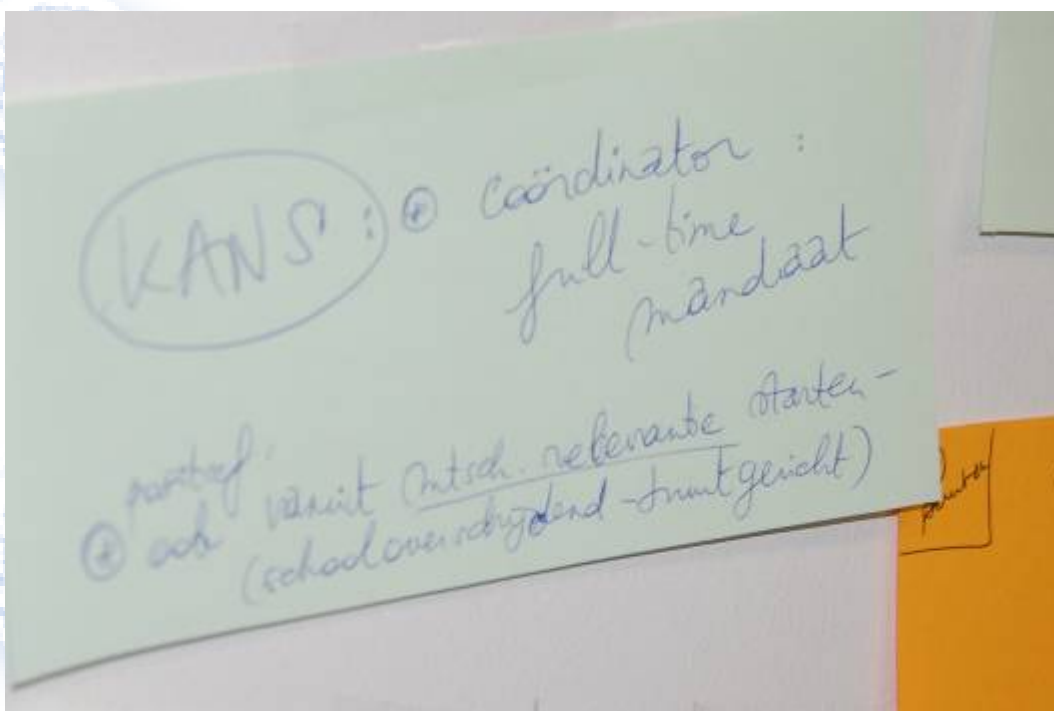 KANS : ⊕ coördinator :
full-time
mandaat
positief :
⊕ ook vanuit mtsch. relevante starten -
(schooloverschrijdend - buurtgericht)